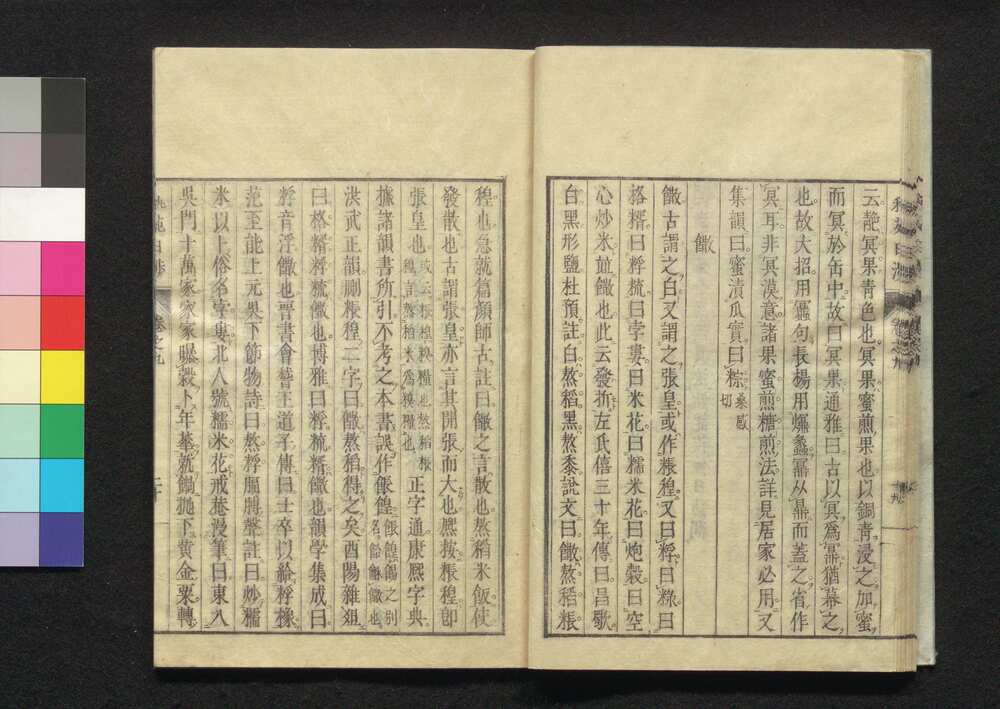 云靘冥果青色也冥果蜜煎果也以銅青浸之加蜜
而冥於缶中故曰冥果通雅曰古以冥爲羃猶幕之
也故大招用
冥耳非冥漠意諸果蜜煎糖煎法詳見居家必用又
集韻曰蜜漬瓜實曰粽桑感切
饊
饊古謂之白又謂之張皇或作粻䅣又曰粰曰糫曰
格糈曰粰梳曰孛婁曰米花曰糯米花曰炮穀曰空
心炒米並饊也此云發折左氏僖三十年傳曰昌歜
白黑形鹽杜預註白熬稻黑熬黍說文曰饊熬稻粻
䅣也急就篇顔師古註曰饊之言散也熬稻米飯使
發散也古謂張皇亦言其開張而大也熙按粻䅣即
張皇也
正字通康熙字典
據諸韻書所引不考之本書誤作餦餭餦餭餳之別名餄饊也
洪武正韻刪粻䅣二字曰饊熬稻得之矣酉陽雜俎
曰格糈粰梳饊也博雅曰粰梳糈饊也韻學集成曰
粰音浮饊也晉書會稽王道子傳曰士卒以給粰橡
范至能上元吳下節物詩曰熬粰腷膊聲註曰炒糯
米以卜俗名孛婁北人號糯米花戒菴漫筆曰東入
吳門十萬家家家爆穀卜年華就鍋抛下黄金粟轉